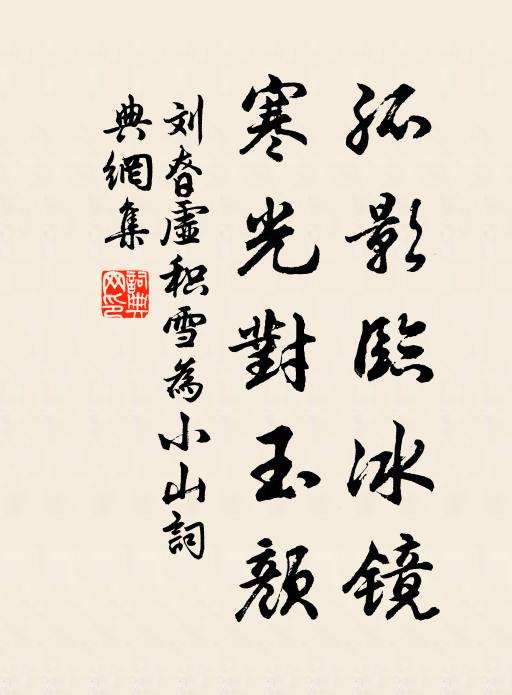 孤影臨冰镜
寒光對玉顏
刘眘虛积雪為小山詞
典網集
詞典网印